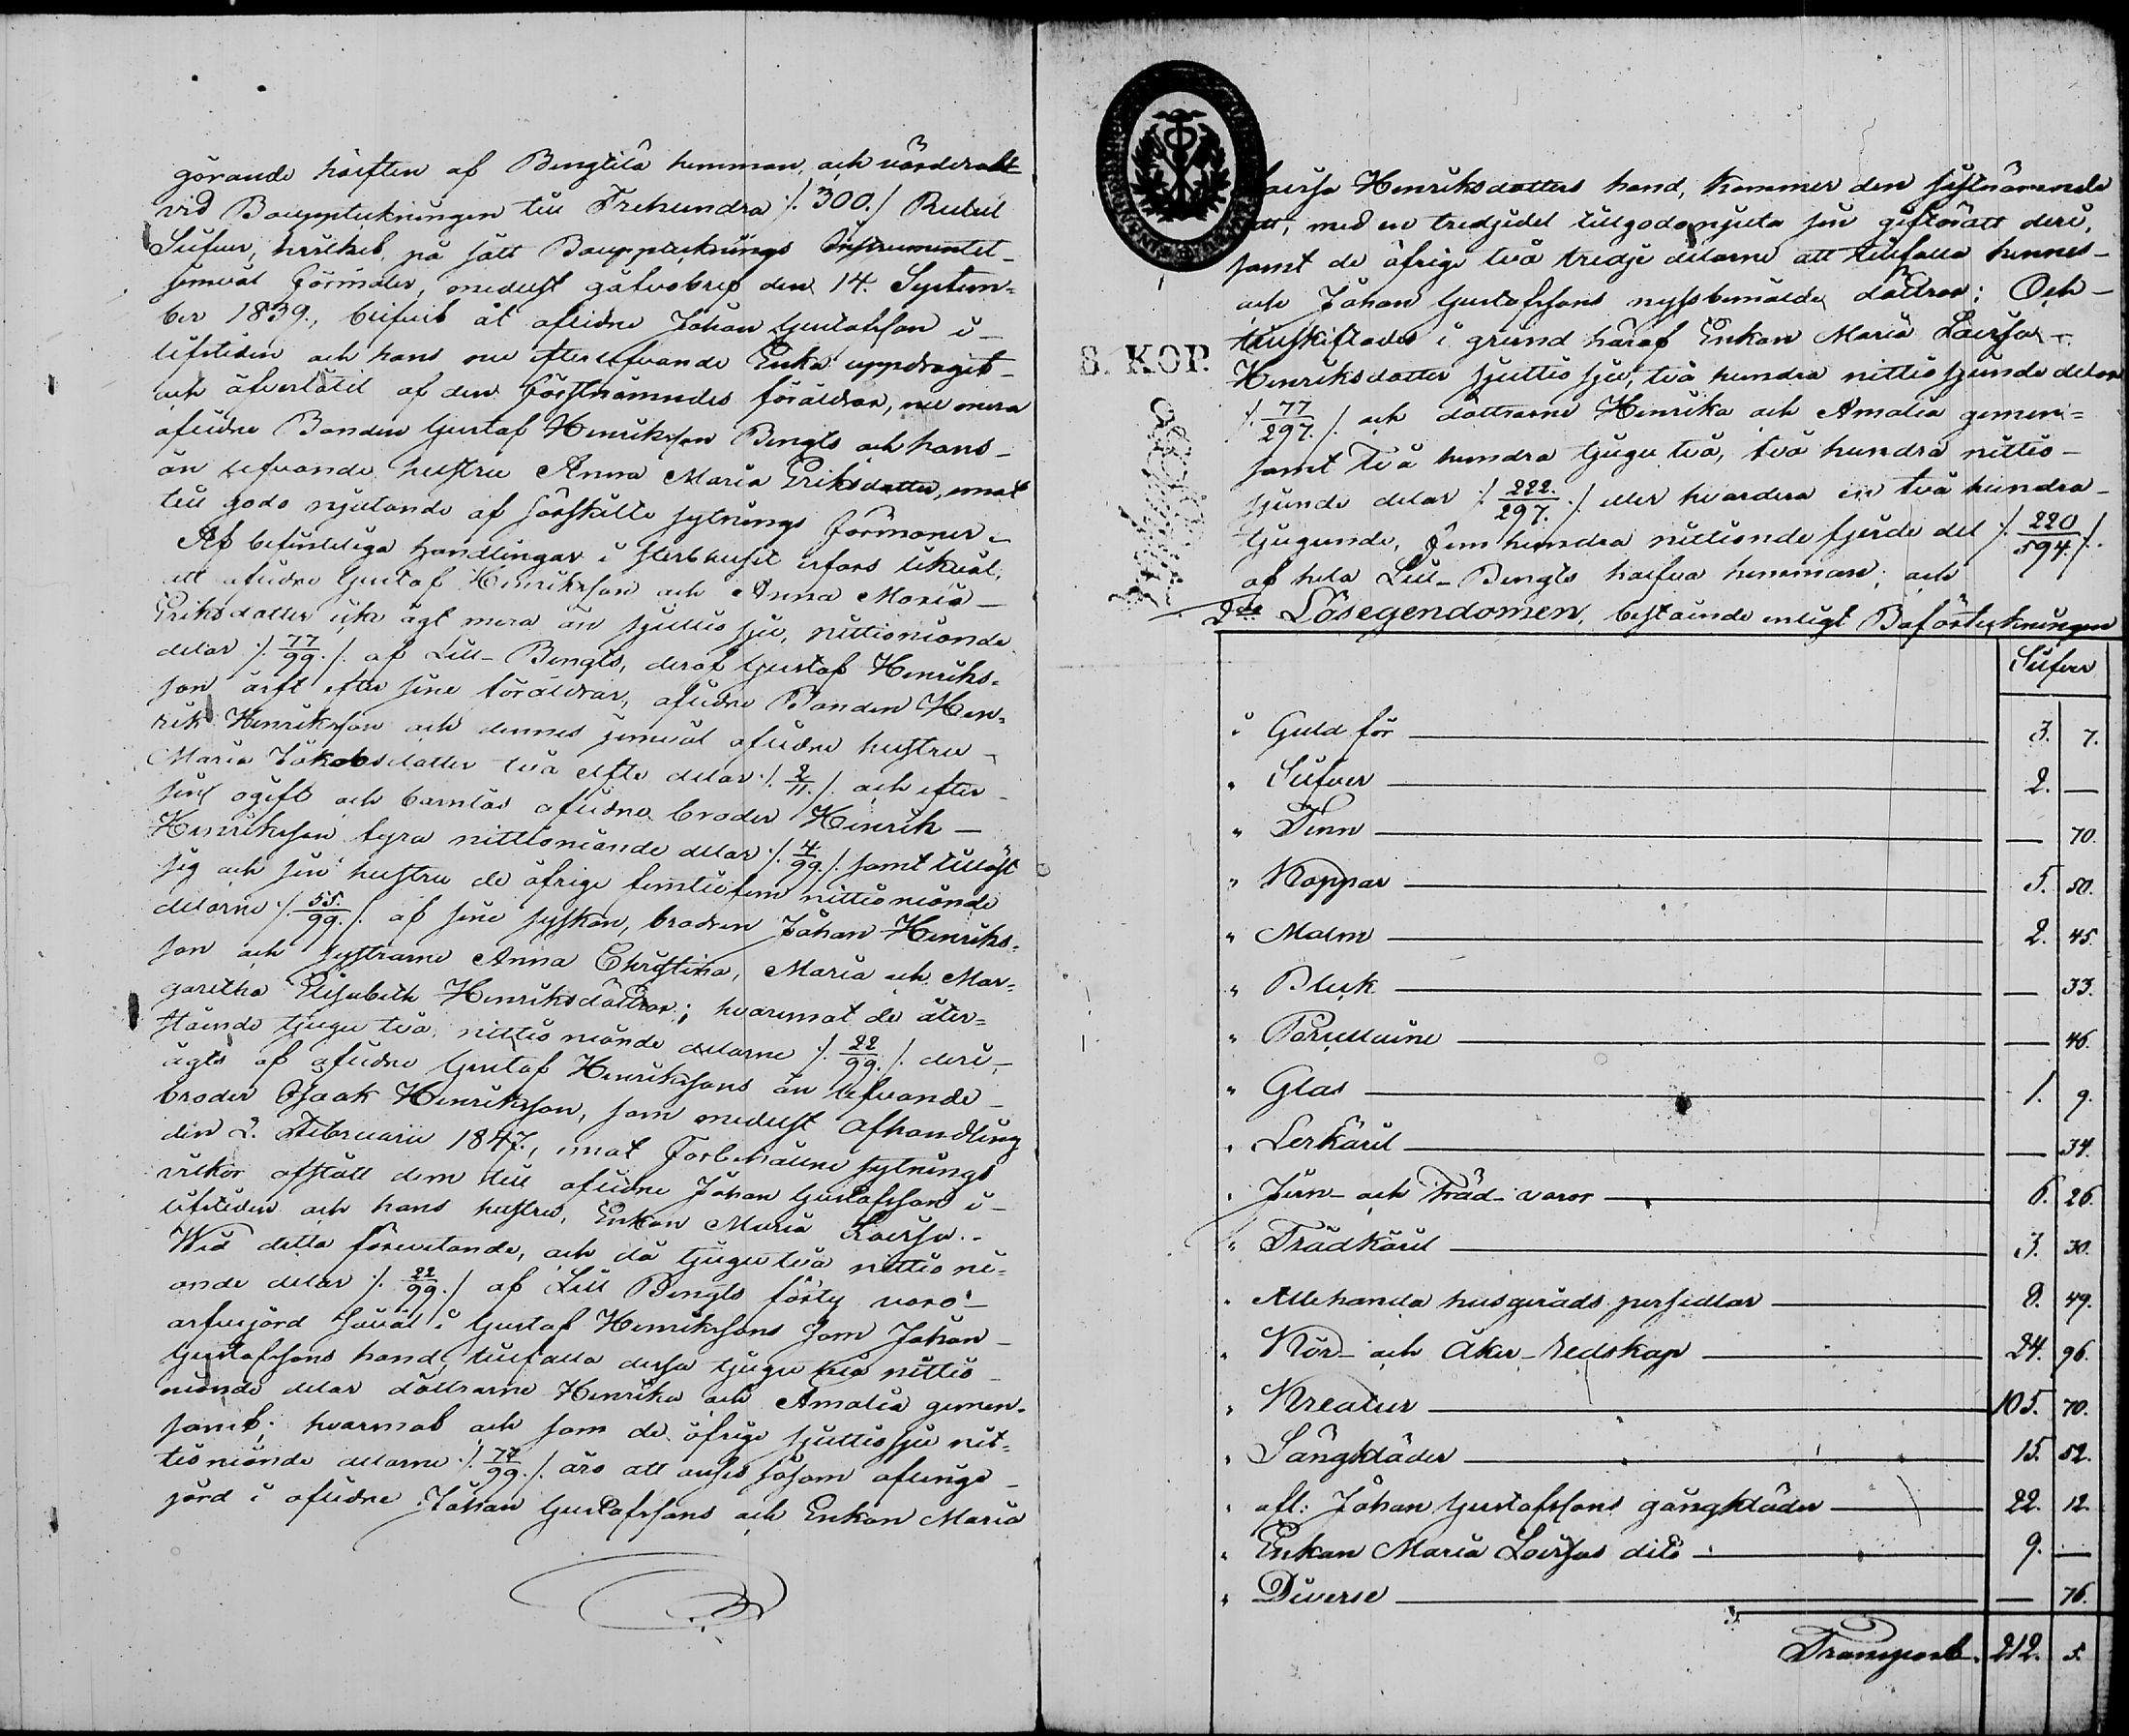 görande hälften af Bengtila hemman, och värderadt
vid Bouppteckningen till Trehundra /. 300./ Rubel
Silfver, hvilket, på sätt Bouppteknings Instrumentet
jemväl förmäler, medelst gåfvobref den 14. Septem-
ber 1839., blifvit åt aflidne Johan Gustafsson i
lifstiden och hans nu efterlefvande Enka uppdraget
och öfverlåtit af den förstnämndes föräldrar, nu mera
aflidne Bonden Gustaf Henriksson Bengts och hans
än lefvande hustru Anna Maria Eriksdotter, emot
till godo njutande af särskilte sytnings förmoner.
Af befinteliga handlingar i sterbhuset erfors likväl,
att aflidne Gustaf Henriksson och Anna Maria
Eriksdotter icke ägt mera än sjuttio sju, nittionionde
delar /. 77/99. /. af Lill-Bengts, deraf Gustaf Henriks-
son ärft efter sine föräldrar, aflidne Bonden Hen-
rik Henriksson och dennes jemväl aflidne hustru
Maria Jakobsdotter två elfte delar /. 2/11. /. och efter
sin ogift och barnlös aflidne broder Henrik
Henriksson fyra nittionionde delar /. 4/99. /. samt tillöst
sig och sin hustru de öfrige femtiofem nittionionde
delarne /. 55./99. /. af sine syskon, brodren Johan Henriks-
son och systrarne Anna Christina, Maria och Mar-
garetha Elisabeth Henriksdöttrar; hvaremot de åter-
stående tjugu två, nittionionde delarne /. 22/99. /. deri,
ägts af aflidne Gustaf Henrikssons än lefvande
broder Isaak Henriksson, som medelst afhandling
den 2. Februarii 1847., emot förbehållne sytnings
vilkor afstått dem till aflidne Johan Gustafsson i
lifstiden och hans hustru, Enkan Maria Lovisa.
Wid detta förevetande, och då tjugu två nittio ni-
onde delar /. 22/99. / af Lill Bengts förty voro
arfvejord såväl i Gustaf Henrikssons som Johan
Gustafssons hand, tillfalla dessa tjugu två nittio
nionde delar döttrarne Henrika och Amalia gemen-
samt; hvarmot och som de öfrige sjuttiosju nit-
tionionde delarne /. 77/99. /. äro att anses såsom aflinge
jord i aflidne Johan Gustafssons och Enkan Maria
8. KOP.
Lovisa Henriksdotters hand, kommer den sistnämnda
att, med en tredjedel tillgodonjuta sin giftorätt deri,
samt de öfrige två tredje delarne att tillfalla hennes
och Johan Gustafssons nyssbemälde döttrar; Och
tillskiftades i grund häraf Enkan Maria Lovisa
Henriksdotter sjuttio sju, två hundra nittiosjunde delar
/. 77/297. /. och döttrarne Henrika och Amalia gemen-
samt Två hundra tjugu två, två hundra nittio
sjunde delar /. 222./297. / eller hvardera en två hundra
tjugunde, fem hundra nittionde fjerde del /. 220/594. /.
af hela Lill-Bengts halfva hemman; och
2do Lösegendomen, bestående enligt Boförteckningen
Silfver
i Guld för 3. 7.
" Silfver 2. —
" Tenn — 70.
" Koppar 5. 50.
" Malm 2. 45.
" Bleck — 33.
" Porcellaine — 46.
" Glas 1. 9.
" Lerkäril — 34.
" Jern- och Träd varor 6. 26.
" Trädkäril 3. 30.
" Allehanda husgeråds persedlar 8. 49.
" Kör- och Åker-redskap 24. 96.
" Kreatur 105. 70.
" Sängkläder 15. 52.
" afl: Johan Gustafssons gångkläder 22. 12.
" Enkan Maria Lovisas dito 9. —
" Diverse — 76.
Transport. 212. 5.